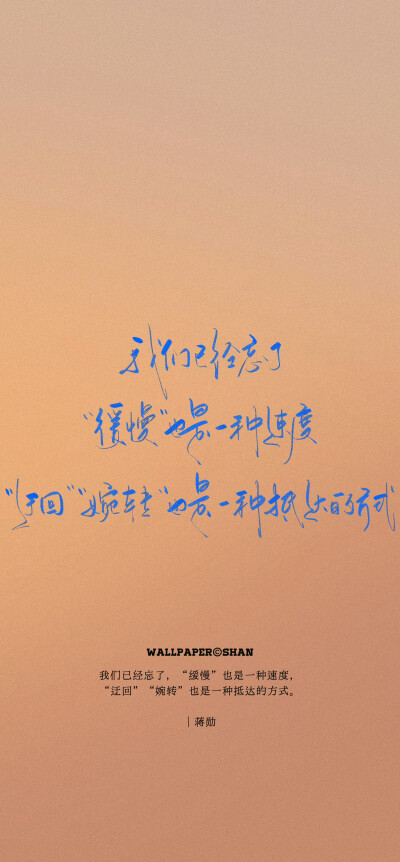 我们已经忘了
“缓慢”也是一种速度
“迂回”“婉转”也是一种抵达的方式
WALLPAPER©SHAN
我们已经忘了，“缓慢”也是一种速度，
“迂回”“婉转”也是一种抵达的方式。
｜蒋勋